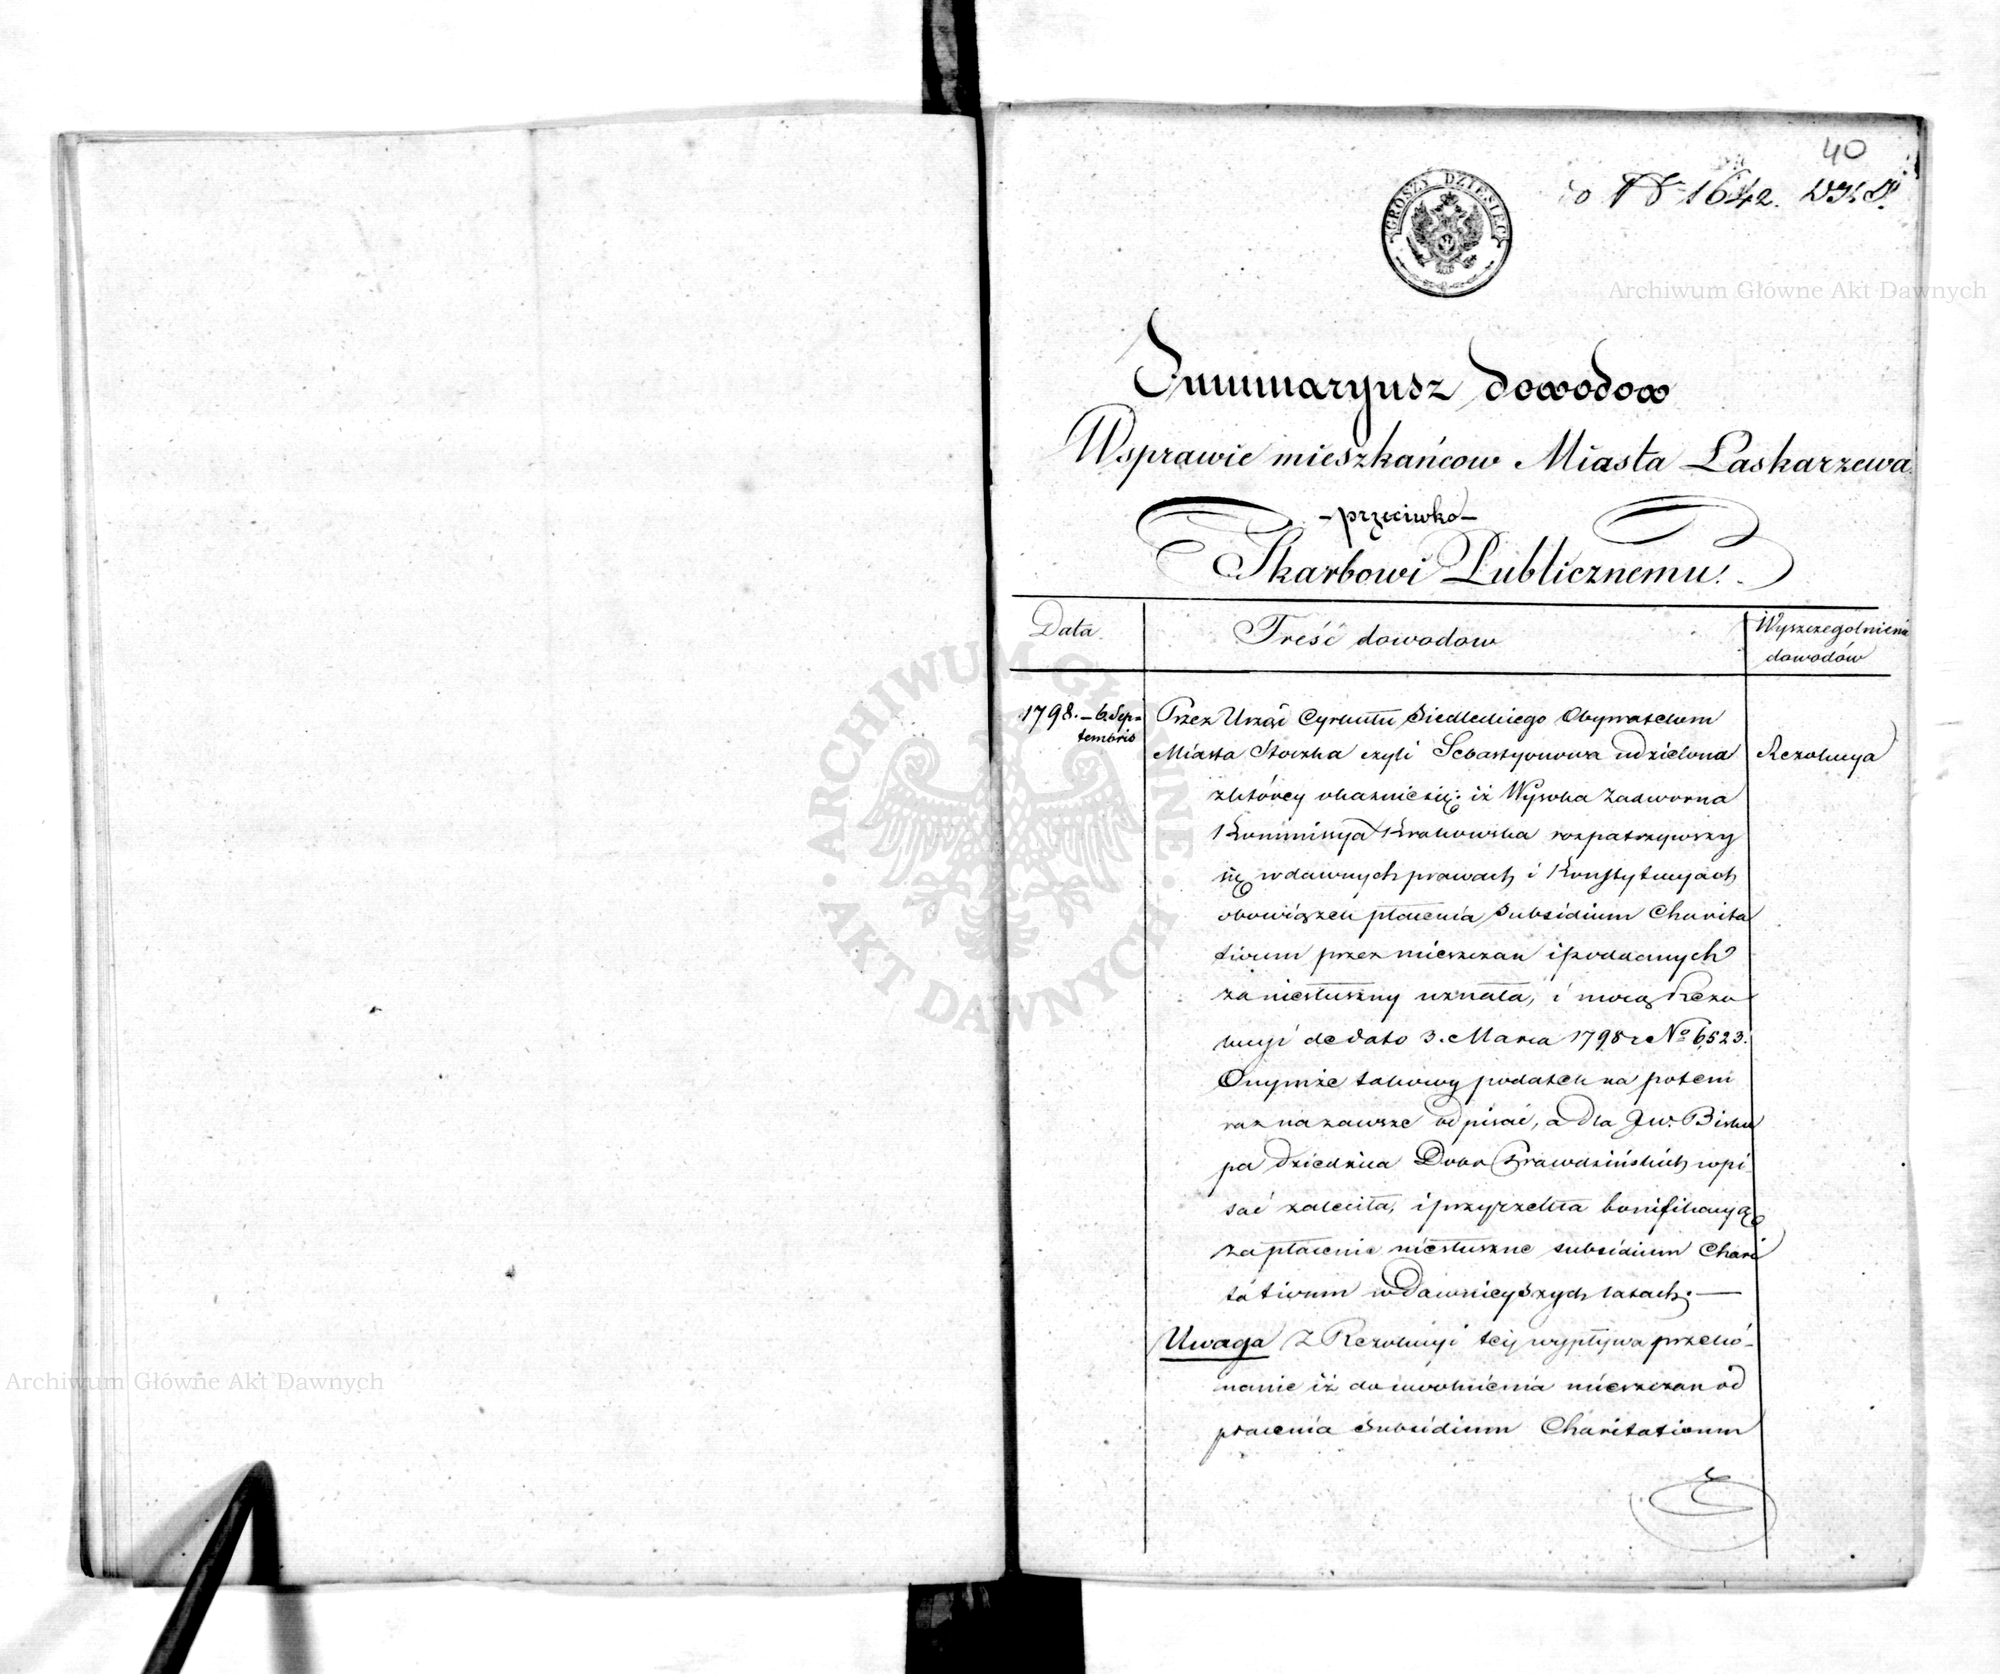 40
do No 1642. W.K.P.
GROSZY DZIESIĘĆ
Archiwum Główne Akt Dawnych
Summaryusz dowodow
W sprawie mieszkańcow Miasta Łaskarzewa
- przeciwko -
Skarbowi Publicznemu.
Data.
Treść dowodow
Wyszczegolnienie
dowodów
1798. – 6. Sep=
tembris
Przez Urząd Cyrkułu Siedleckiego Obywatelom
Miasta Stoczka czyli Sebastyonowa udzielona
Rezolucya
z którey okaznie się: iż Wysoka Zadworna
Kommissya Krakowska rozpatrzywszy
się w dawnych prawach i Konstytucyach
obowiązek płacenia Subsidium Charita
tivum przez mieszczan i poddanych
za niesłuszny uznała, i mocą Rezo
lucyi de dato 3. Marca 1798 r No 6523.
Onymże takowy podatek na potem
raz na zawsze odpisać, a dla Jw. Bisku
pa dziedzica Dobr Prawdzińskich wpi
sać zaleciła, i przyrzekła bonifikacyą
za płacenie niesłuszne subsidium Chari
tativum w dawnieyszych latach. —
Uwaga Z Rezolucyi tey wypływa przekó-
nanie iż do uwolnienia mieszczan od
płacenia Subsidium Charitativum
ARCHIWUM GŁÓWNE AKT DAWNYCH
Archiwum Główne Akt Dawnych